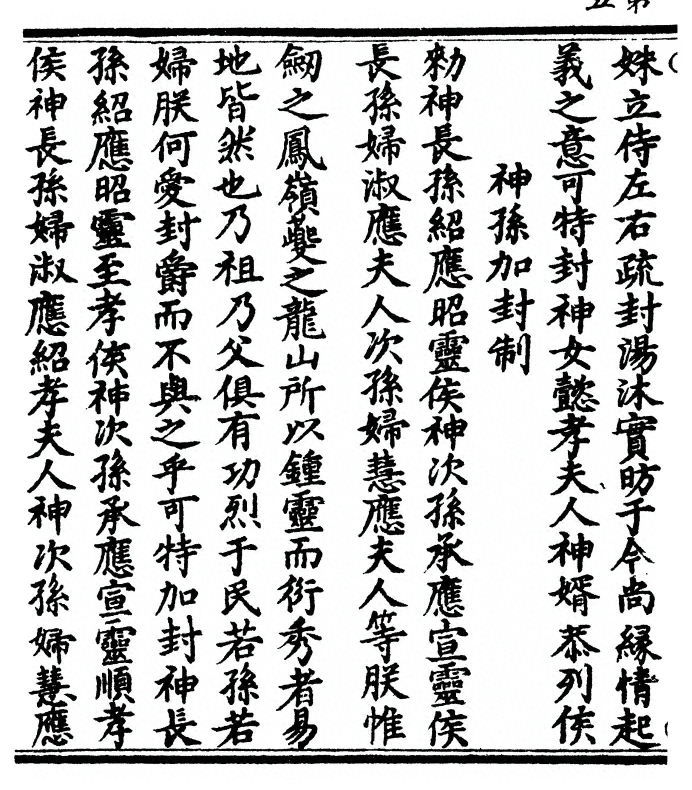 妹立侍左右疏封湯沐實昉于今尚緣情起
義之意可特封神女懿孝夫人神婿恭列侯
神孫加封制
勑神長孫紹應昭靈侯神次孫承應宣靈侯
長孫婦淑應夫人次孫婦慧應夫人等朕惟
劒之鳳嶺夔之龍山所以鍾靈而衍秀者易
地皆然也乃祖乃父俱有功烈于民若孫若
婦朕何愛封爵而不與之乎可特加封神長
孫紹應昭靈至孝侯神次孫承應宣靈順孝
侯神長孫婦淑應紹孝夫人神次孫婦慧應